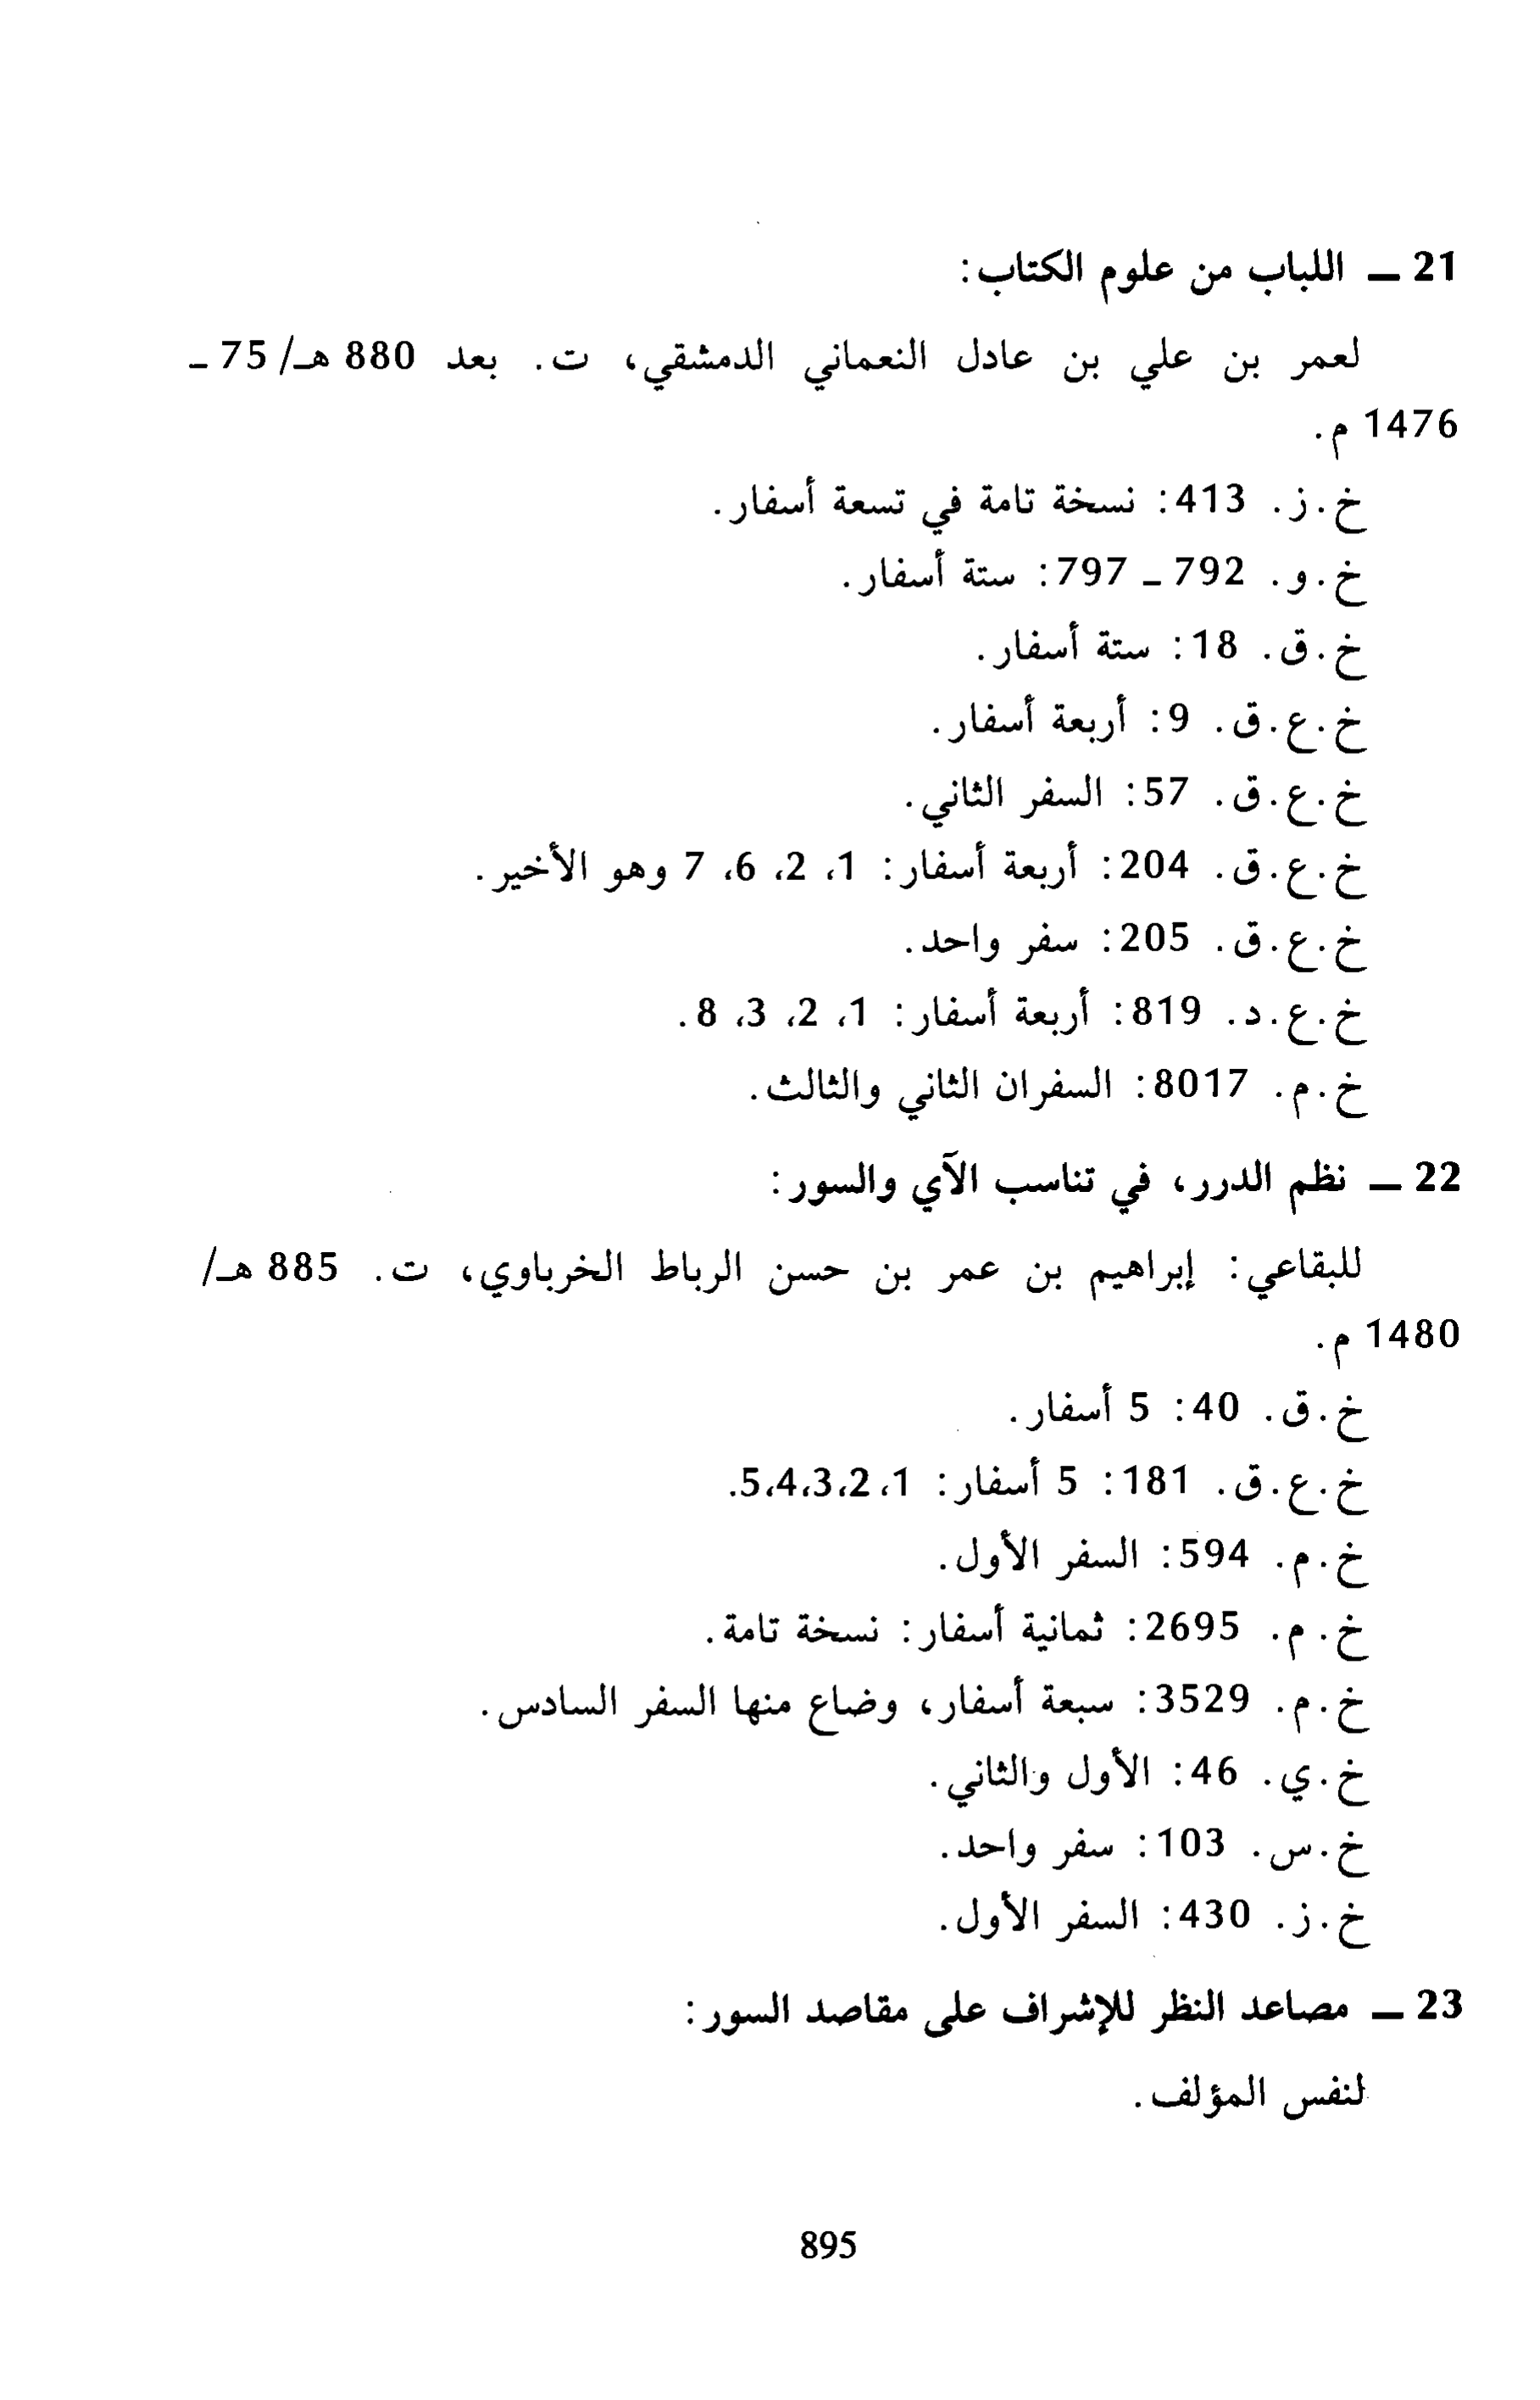 21 — اللباب من علوم الكتاب:
لعمر بن علي بن عادل النعماني الدمشقي، ت. بعد 880 هـ/ 75 -
1476 م.
خ.ز. 413: نسخة تامة في تسعة أسفار.
خ.و. 792 - 797: ستة أسفار.
خ.ق. 18: ستة أسفار.
خ.ع.ق. 9: أربعة أسفار.
خ.ع.ق. 57: السفر الثاني.
خ.ع.ق. 204: أربعة أسفار: 1، 2، 6، 7 وهو الأخير.
خ.ع.ق. 205: سفر واحد.
خ.ع.د. 819: أربعة أسفار: 1، 2، 3، 8.
خ.م. 8017: السفران الثاني والثالث.
22 — نظم الدرر، في تناسب الآي والسور:
للبقاعي: إبراهيم بن عمر بن حسن الرباط الخرباوي، ت. 885 هـ/
1480 م.
خ.ق. 40: 5 أسفار.
خ.ع.ق. 181: 5 أسفار: 1، 2،3،4،5.
خ.م. 594: السفر الأول.
خ.م. 2695: ثمانية أسفار: نسخة تامة.
خ.م. 3529: سبعة أسفار، وضاع منها السفر السادس.
خ.ي. 46: الأول والثاني.
خ.س. 103: سفر واحد.
خ.ز. 430: السفر الأول.
23 — مصاعد النظر للإشراف على مقاصد السور:
لنفس المؤلف.
895